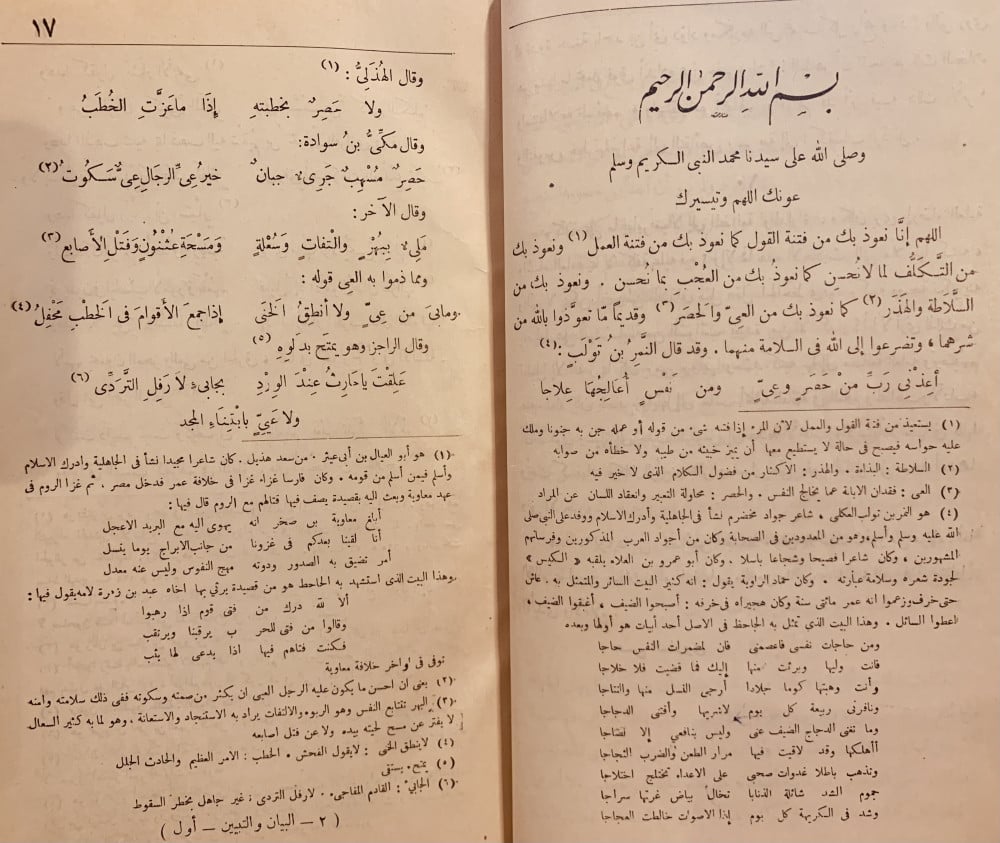 بسم الله الرحمن الرحيم
وصلى الله على سيدنا محمد النبى الكريم وسلم
عونك اللهم وتيسيرك
اللهم إنَّا نعوذ بك من فتنة القول كما نعوذ بك من فتنة العمل (١) ونعوذ بك
من التَّكَلُّف لما لا نُحسن كما نعوذُ بك من العُجْب بما نُحسن . ونعوذ بك من
السَّلَاطة والهَذَر (٢) كما نعوذ بك من العىّ والحَصَر (٣) وقديمًا مّا تعوَّذوا بالله من
شرهما ، وتضرعوا إلى الله فى السلامة منهما . وقد قال النَّمِرُ بنُ تَوْلَب : (٤)
أعِذْنِى رَبِّ منْ حَصَرٍ وعِىٍّ ومن نَفْسٍ أُعَالِجُهَا عِلاجا
(١) يستعيذ من فتنة القول والعمل لأن المرء إذا فتنه شىء من قوله أو عمله جن به جنونا وملك
عليه حواسه فيصبح فى حالة لا يستطيع معها أن يميز خبيثه من طيبه ولا خطأه من صوابه
(٢) السلاطة : البذاءة . والهذر : الاكثار من فضول الكلام الذى لا خير فيه
(٣) العى : فقدان الابانة عما يخالج النفس . والحصر : محاولة التعبير وانعقاد اللسان عن المراد
(٤) هو النمر بن تولب العكلى ، شاعر جواد مخضرم نشأ فى الجاهلية وأدرك الاسلام ووفد على النبى صلى
الله عليه وسلم وأسلم وهو من المعدودين فى الصحابة وكان من أجواد العرب المذكورين وفرسانهم
المشهورين ، وكان شاعرا فصيحا وشجاعا باسلا . وكان أبو عمرو بن العلاء يلقبه « الكيس »
لجودة شعره وسلامة عبارته . وكان حماد الراوية يقول : انه كثير البيت السائر والمتمثل به . عاش
حتى خرف وزعموا انه عمر مائتى سنة وكان هجيراه فى خرفه : أصبحوا الضيف ، أغبقوا الضيف ،
اعطوا السائل . وهذا البيت الذى تمثل به الجاحظ فى الاصل أحد أبيات هو أولها وبعده
ومن حاجات نفسى فاعصمنى فان لمضمرات النفس حاجا
فانت وليها وبرئت منها إليك فما قضيت فلا خلاجا
وأنت وهبتها كوما جلادا أرجى النسل منها والنتاجا
وتأمرنى ربيعة كل يوم لاشريها وأقتنى الدجاجا
وما تغنى الدجاج الضيف عنى وليس بنافعى إلا نضاجا
أأهلكها وقد لاقيت فيها مرار الطعن والضرب الشجاجا
وتذهب باطلا غدوات صحبى على الاعداء تختلج اختلاجا
جموم الشد شائلة الذنابا تخال بياض غرتها سراجا
وشد فى الكريهة كل يوم إذا الاصوات خالطت العجاجا
١٧
وقال الهُذَلىُّ : (١)
ولا حَصِرٌ بخطبته إذَا ماعَزَّتِ الخُطَبُ
وقال مكىُّ بنُ سوادة:
حَصِرٌ مُسْهِبٌ جَرِىءٌ جبانٌ خيرُ عِىِّ الرجالِ عِىُّ سَّكُوتٌ (٢)
وقال الآخر :
مَلِىءٌ بِبُهْرٍ والتفاتٍ وَسُعْلةٍ وَمَسْحَةِ عُثْنُونٍ وَفَتْلِ الأصابع (٣)
ومما ذموا به العى قوله :
ومابىَ من عِىٍّ ولا أنطِقُ الخَنَى إذا جمعَ الأقوامَ فى الخَطْبِ مَحْفِلُ (٤)
وقال الراجز وهو يمتح بدلوهِ (٥)
عَلِقْتَ ياحَارِثُ عِنْدَ الوِرْدِ بجابىءٍ لَا رَفِلِ التَّرَدِّى (٦)
ولا عَيِىٍّ بابْتِنَاءِ المجد
(١) هو أبو العيال بن أبى عيثر . من سعد هذيل . كان شاعرا مجيدا نشأ فى الجاهلية وأدرك الاسلام
وأسلم فيمن أسلم من قومه . وكان فارسا غزاء غزا فى خلافة عمر فدخل مصر ، ثم غزا الروم فى
عهد معاوية وبعث اليه بقصيدة يصف فيها قتالهم مع الروم قال فيها :
أبلغ معاوية بن صخر انه يهوى اليه مع البريد الاعجل
أنا لقينا بعدكم فى غزونا من جانب الابراج يوما ينسل
أمر تضيق به الصدور ودونه مهج النفوس وليس عنه معدل
وهذا البيت الذى استشهد به الجاحظ هو من قصيدة يرثى بها أخاه عبد بن زهرة لامه يقول فيها :
ألا لله درك من فتى قوم اذا رهبوا
وقالوا من فتى للحر ب يرقبنا ويرتقب
فكنت فتاهم فيها اذا يدعى لها يثب
توفى فى أواخر خلافة معاوية
(٢) يعنى ان احسن ما يكون عليه الرجل العيى ان يكثر من صمته وسكوته ففى ذلك سلامته وأمنه
(٣) البهر تتابع النفس وهو الربو، والالتفات يراد به الاستنجاد والاستعانة . وهو لما به كثير السعال.
لا يفتر عن مسح لحيته بيده ولا عن فتل اصابعه
(٤) لا ينطق الخنى : لا يقول الفحش . الخطب : الامر العظيم والحادث الجلل
(٥) يمتح ، يستقى
(٦) الجابىء : القادم المفاجىء . لا رفل التردى : غير جاهل بخطر السقوط
( ٢ – البيان والتبيين – أول )